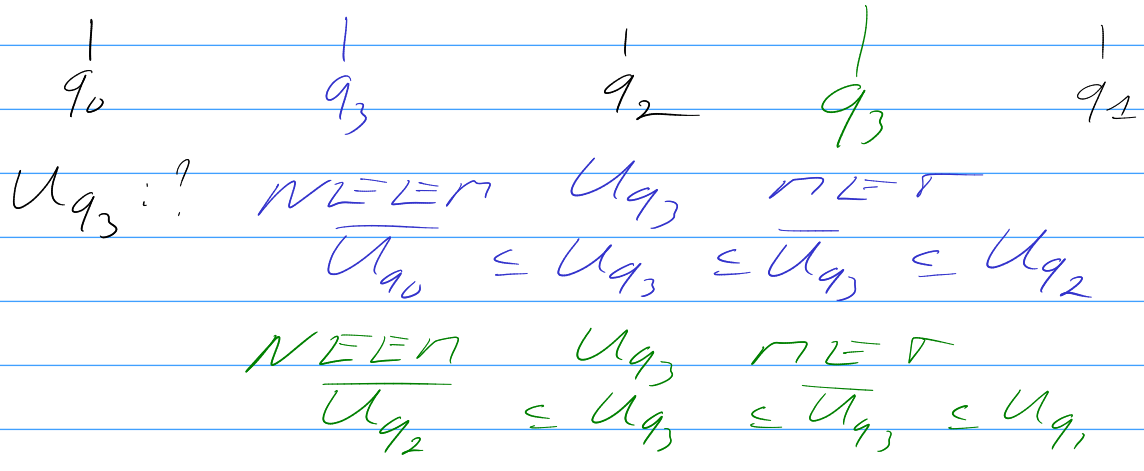 q₀ q₃ q₂ q₃ q₁
U_{q₃} : ? NEEM U_{q₃} MET
\overline{U_{q₀}} ⊆ U_{q₃} ⊆ \overline{U_{q₃}} ⊆ U_{q₂}
NEEM U_{q₃} MET
\overline{U_{q₂}} ⊆ U_{q₃} ⊆ \overline{U_{q₃}} ⊆ U_{q₁}